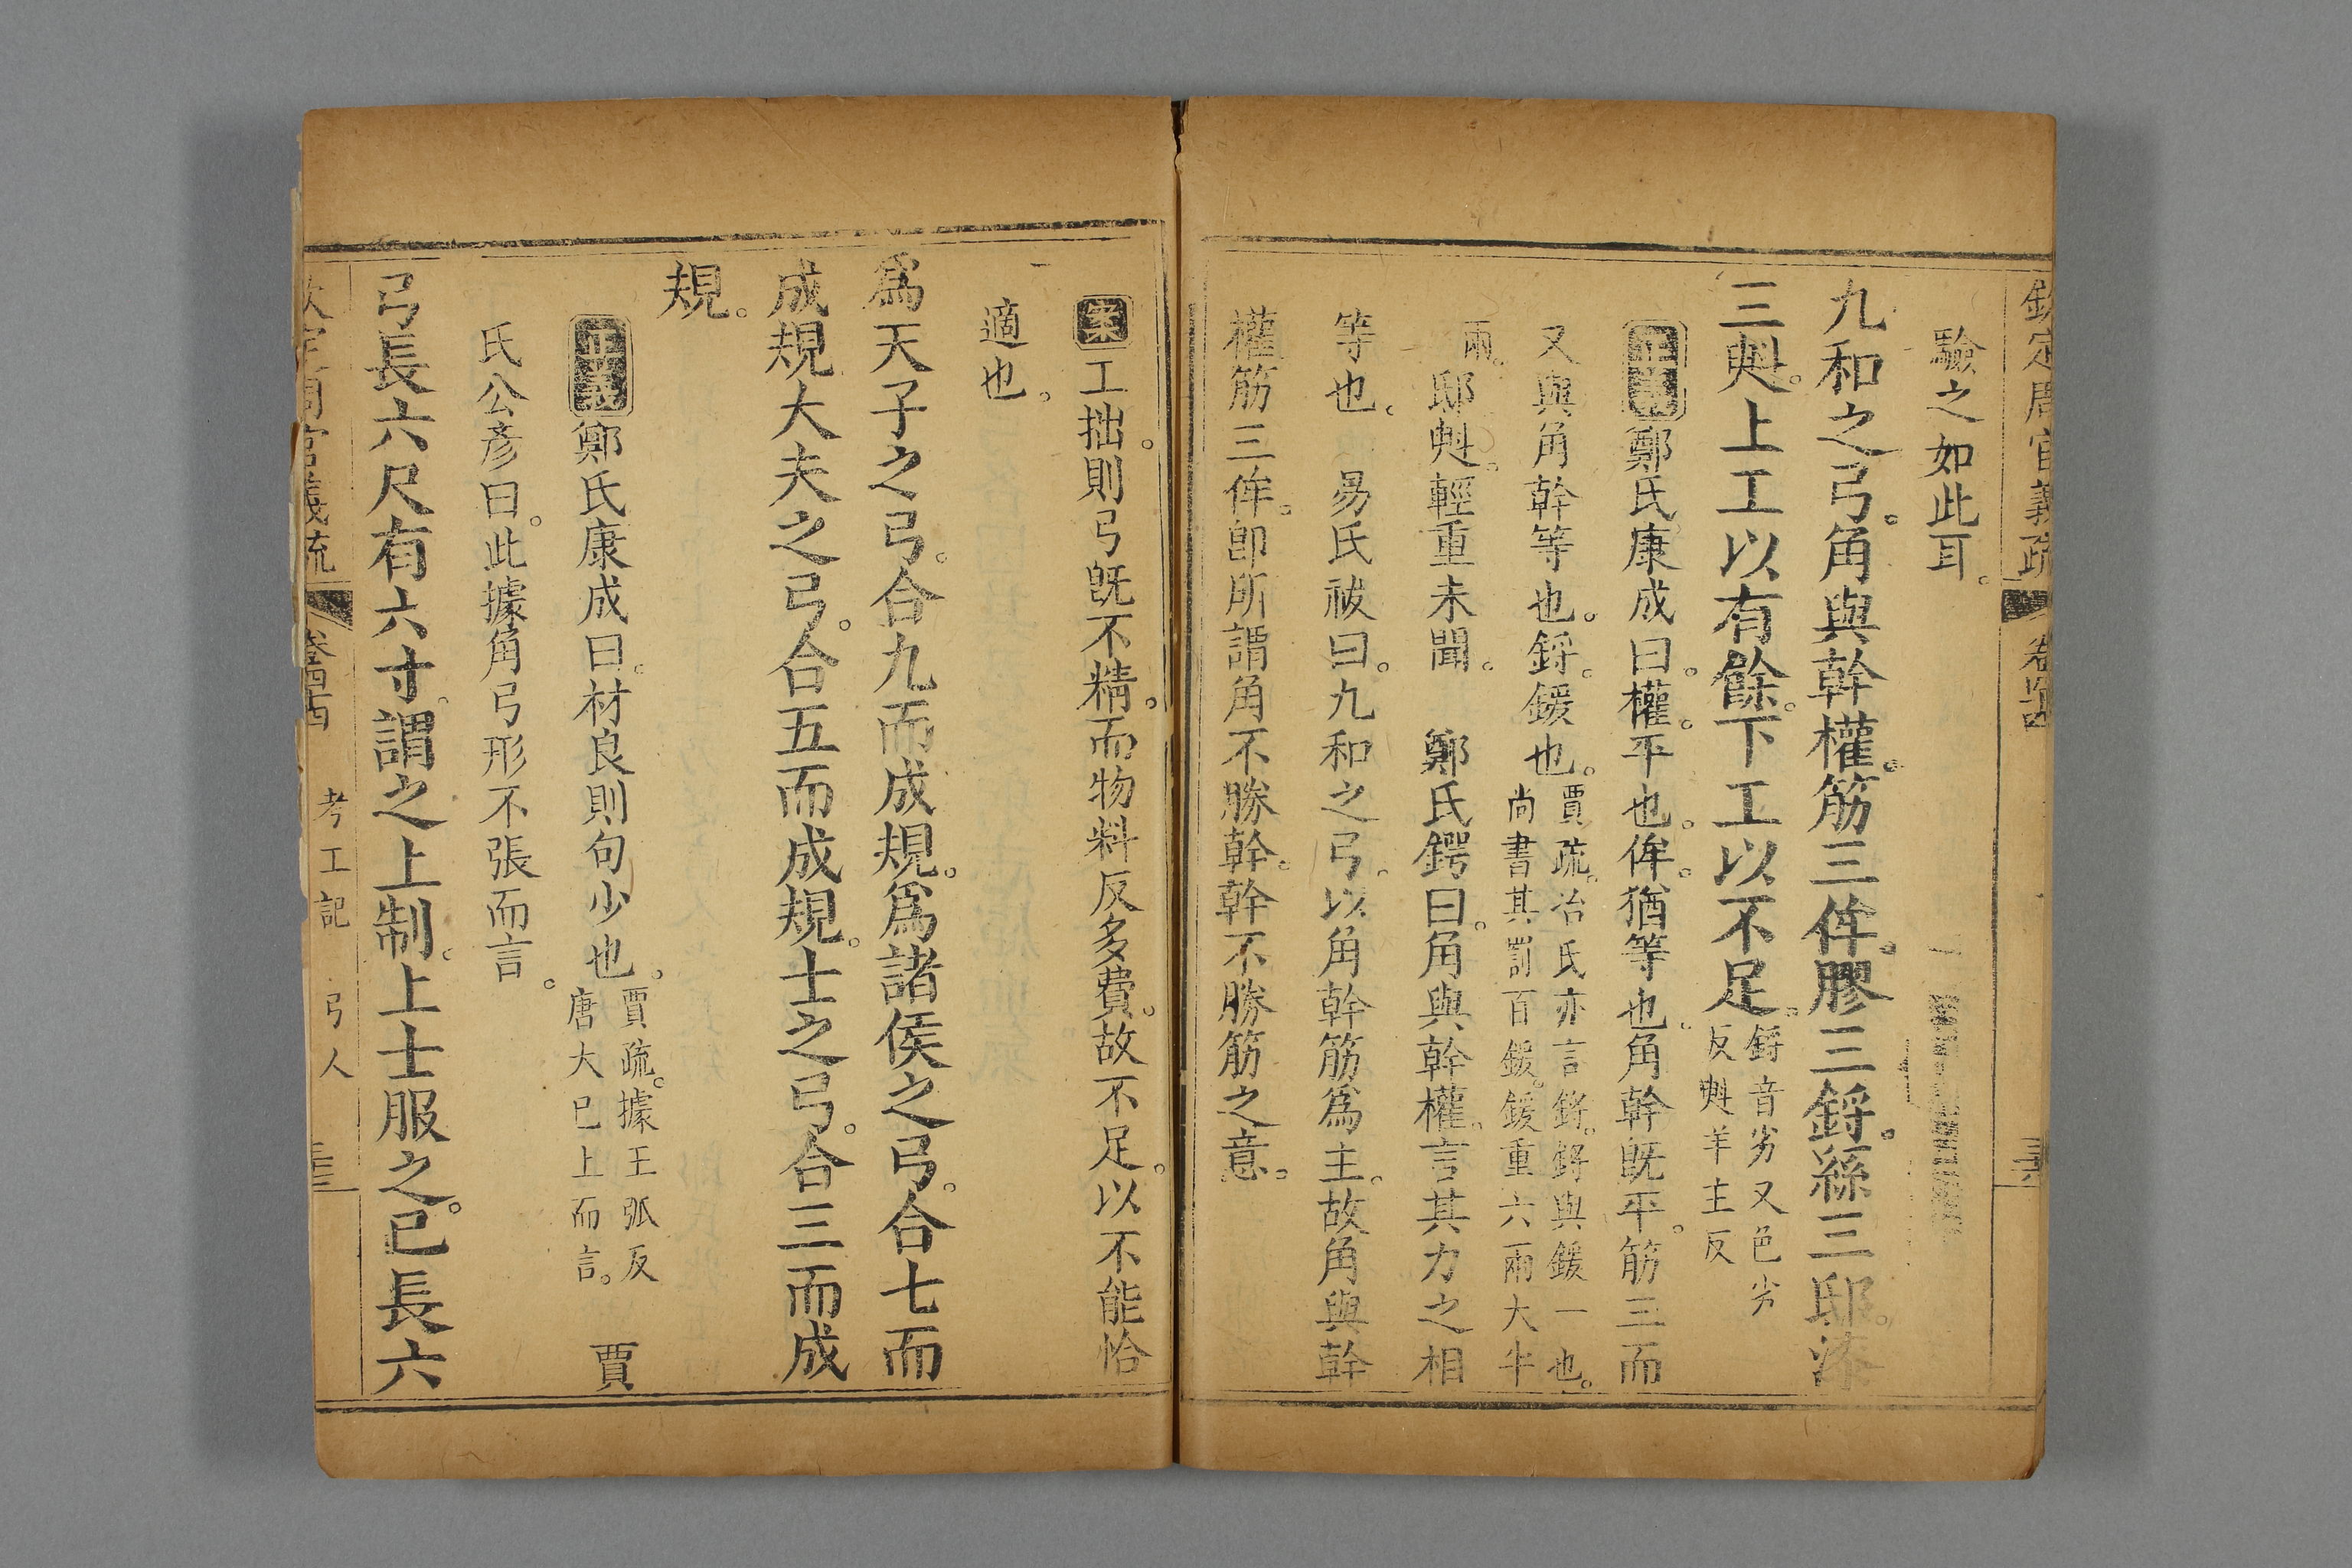 欽定周官義疏
驗之如此耳。
九和之弓。角與幹權。筋三侔。膠三鋝。絲三邸。漆
三㪺。上工以有餘。下工以不足。鋝音劣又色劣
反㪺羊主反
正義鄭氏康成曰。權。平也。侔。猶等也。角幹既平。筋三而
又與角幹等也。鋝。鍰也。賈疏。冶氏亦言鋝。鋝與鍰一也。
尚書其罰百鍰。鍰重六兩大半
兩。邸㪺。輕重未聞。 鄭氏鍔曰。角與幹權。言其力之相
等也。 易氏祓曰。九和之弓。以角幹筋為主。故角與幹
權筋三侔。卽所謂角不勝幹。幹不勝筋之意。
案工拙。則弓旣不精。而物料反多費。故不足。以不能恰
適也。
爲天子之弓。合九而成規。爲諸侯之弓。合七而
成規大夫之弓。合五而成規。士之弓。合三而成
規。
正義鄭氏康成曰。材良則句少也。賈疏。據王弧反
唐大已上而言。 賈
氏公彥曰。此據角弓形不張而言。
弓長六尺有六寸。謂之上制。上士服之。已長六
考工記 弓人